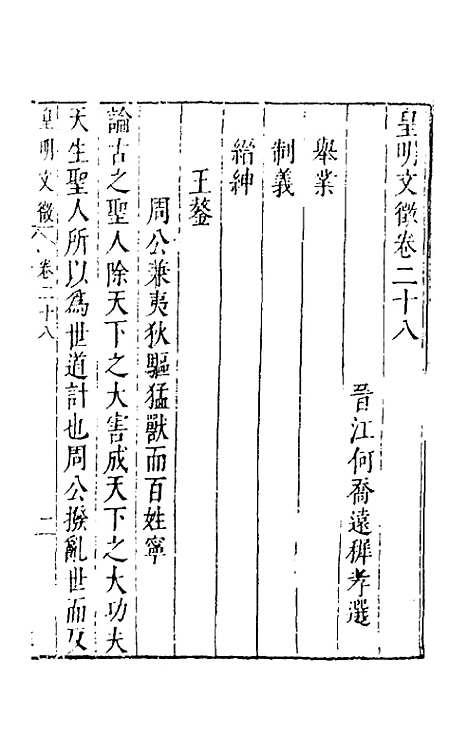 皇明文徵卷二十八
晉江何喬遠穉孝選
舉業
制義
縉紳
王鏊
周公兼夷狄驅猛獸而百姓寧
論古之聖人除天下之大害成天下之大功夫
天生聖人所以為世道計也周公撥亂世而反
皇明文徵 卷二十八 二